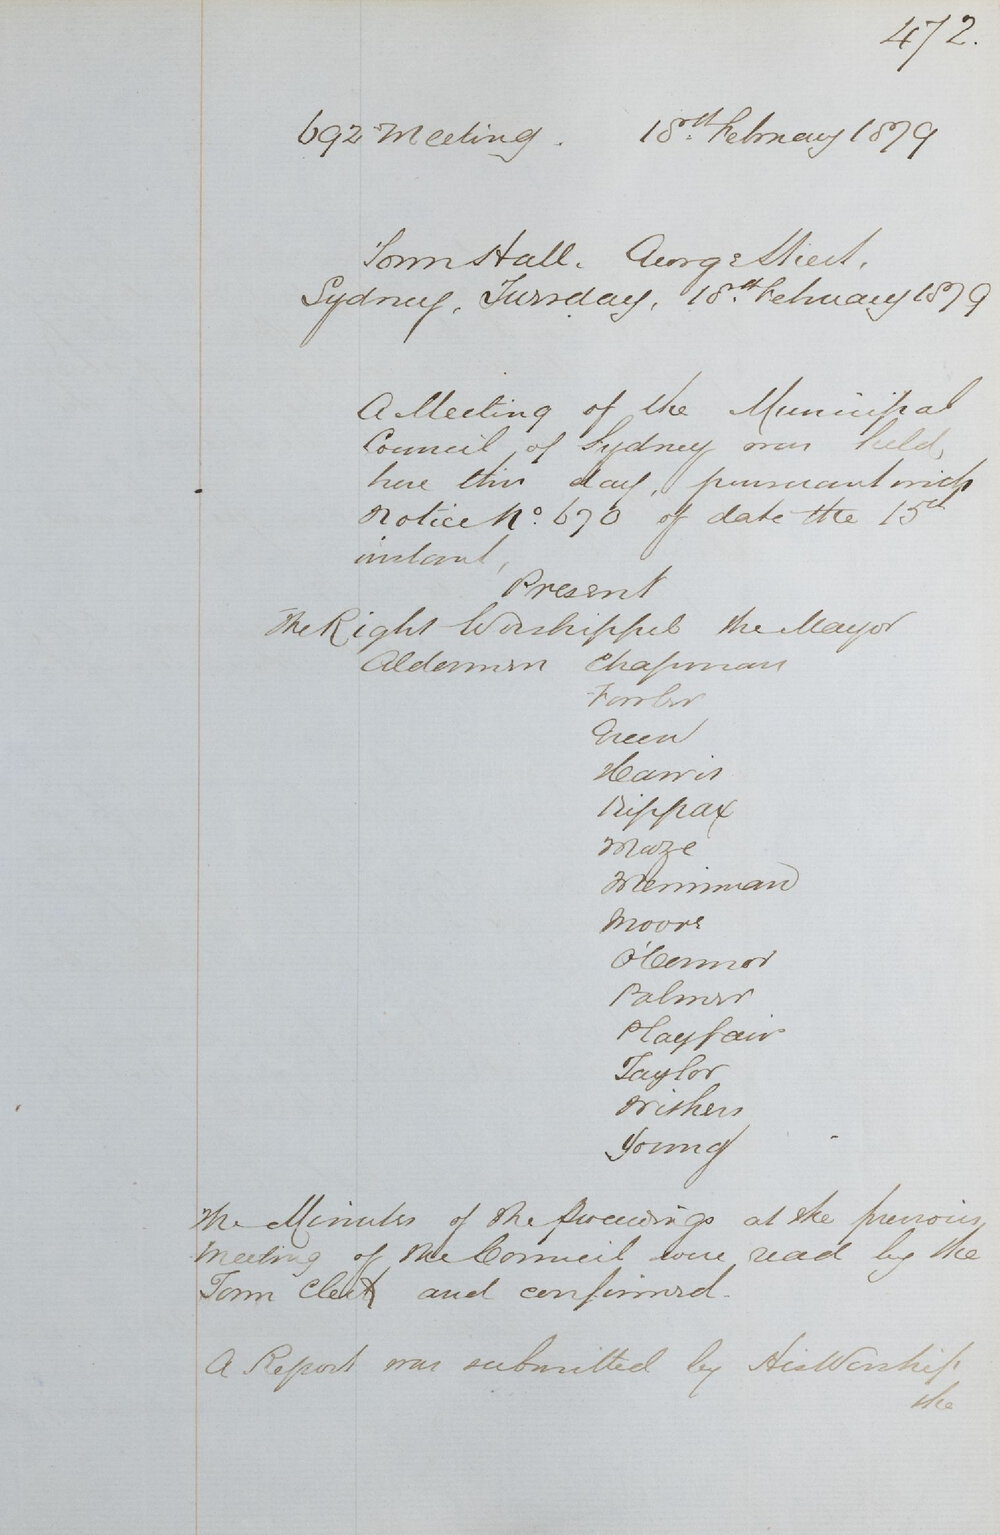 472.
692 Meeting. 18th February 1879
Town Hall. George Street.
Sydney, Tuesday, 18th February 1879
A Meeting of the Municipal
Council of Sydney was held,
here this day, pursuant with
Notice No. 670 of date the 15th
instant,
Present
The Right Worshipful the Mayor
Aldermen Chapman
Fowler
Green
Harris
Kippax
Maze
Merriman
Moore
O'Connor
Palmer
Playfair
Taylor
Withers
Young
The Minutes of the Proceedings at the previous
Meeting of the Council were read by the
Town Clerk and confirmed.
A Report was submitted by His Worship
the